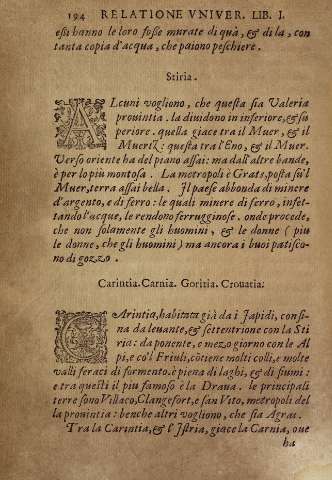 194 RELATIONE VNIVER. LIB. I.
essi hanno le loro fosse murate di quà, & di là, con
tanta copia d'acqua, che paiono peschiere.
Stiria.
ALcuni vogliono, che questa sia Valeria
prouintia. la diuidono in inferiore, & su
periore. quella giace tra il Muer, & il
Muertz: questa tra l'Eno, & il Muer.
Verso oriente ha del piano assai: ma dall'altre bande,
è per lo più montosa. La metropoli è Grats, posta sù'l
Muer, terra assai bella. Il paese abbonda di minere
d'argento, e di ferro: le quali minere di ferro, infet-
tando l'acque, le rendono ferruginose. onde procede,
che non solamente gli huomini, & le donne (piu
le donne, che gli huomini) ma ancora i buoi patisco-
no di gozzo.
Carintia. Carnia. Goritia. Crouatia.
CArintia, habitata già da i Japidi, confi-
na da leuante, & settentrione con la Sti
ria: da ponente, e mezo giorno con le Al
pi, e co'l Friuli, cōtiene molti colli, e molte
valli feraci di formento. è piena di laghi, & di fiumi:
e tra questi il piu famoso è la Draua. le principali
terre sono Villaco, Clangefort, e san Vito, metropoli del
la prouintia: benche altri vogliono, che sia Agras.
Tra la Carintia, & l'Istria, giace la Carnia, oue
ha